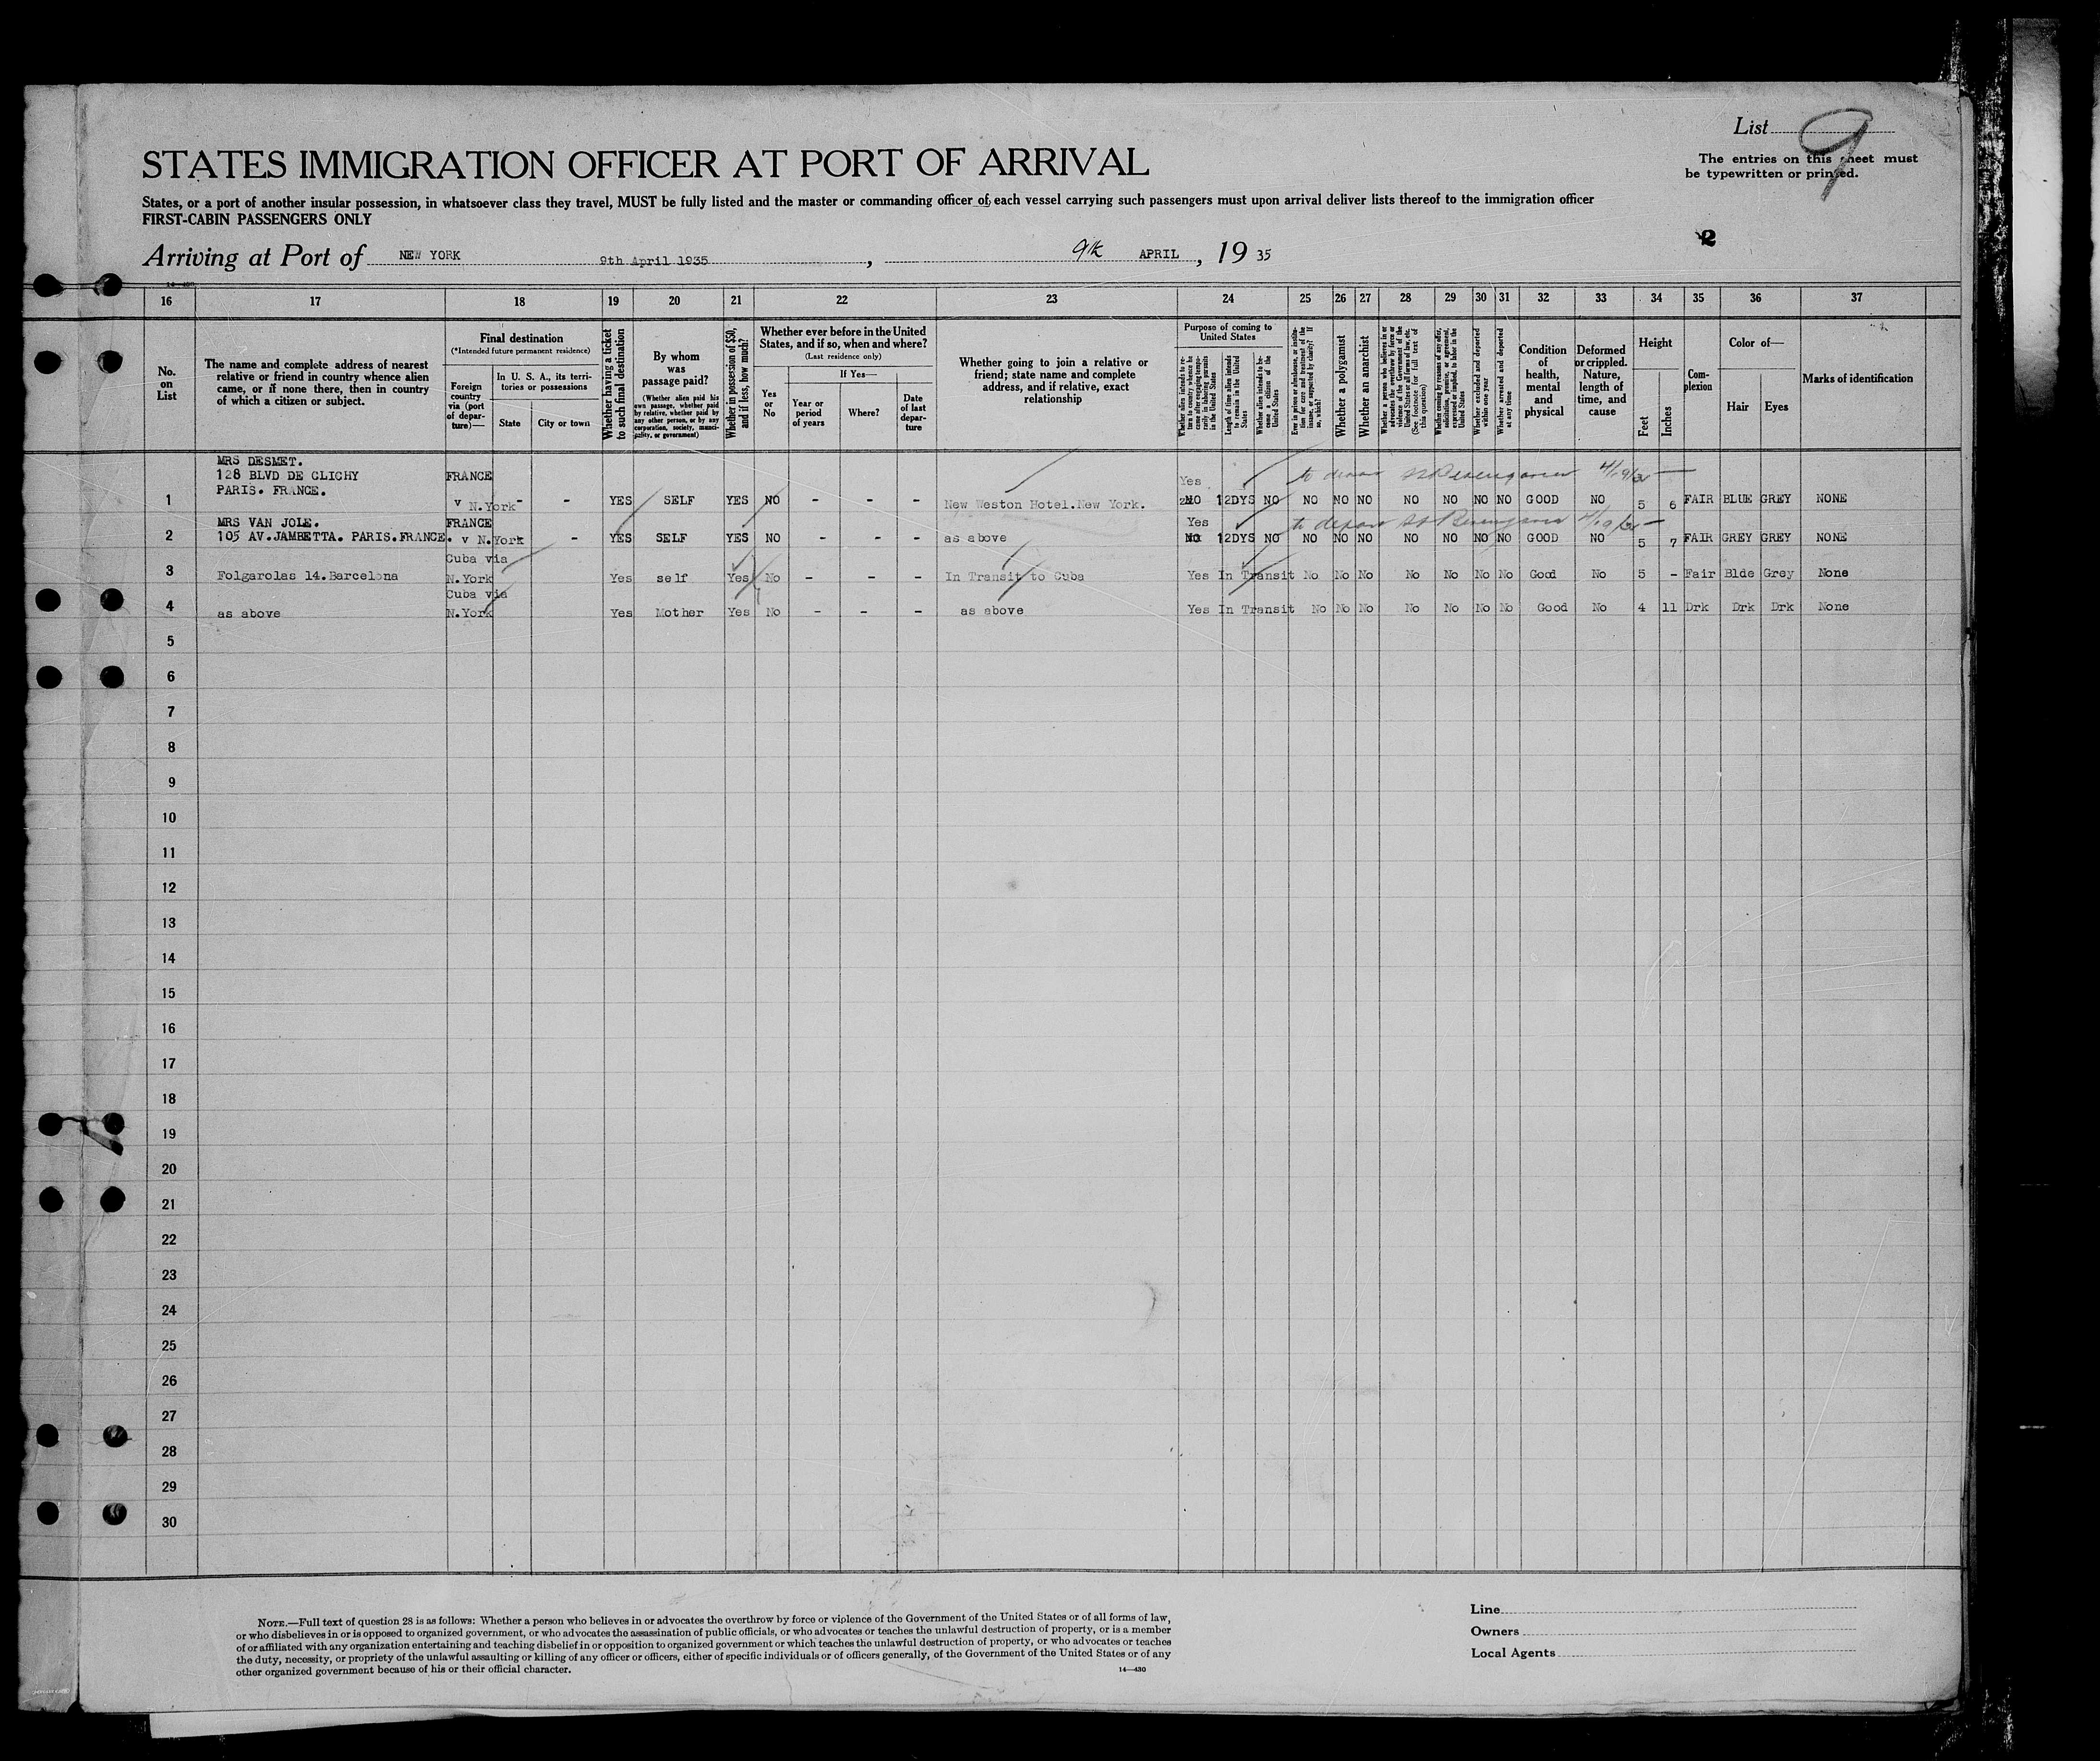 List 9
The entries on this sheet must
be typewritten or printed.
STATES IMMIGRATION OFFICER AT PORT OF ARRIVAL
States, or a port of another insular possession, in whatsoever class they travel, MUST be fully listed and the master or commanding officer of each vessel carrying such passengers must upon arrival deliver lists thereof to the immigration officer
FIRST-CABIN PASSENGERS ONLY
2
Arriving at Port of NEW YORK 9th April 1935, 9th APRIL, 19 35
16 17 18 19 20 21 22 23 24 25 26 27 28 29 30 31 32 33 34 35 36 37
No. on List
The name and complete address of nearest
relative or friend in country whence alien
came, or if none there, then in country
of which a citizen or subject.
Final destination
(*Intended future permanent residence)
Foreign country via (port of departure)—
In U. S. A., its territories or possessions
State
City or town
Whether having a ticket to such final destination
By whom was passage paid?
(Whether alien paid his own passage, whether paid by relative, whether paid by any other person, or by any corporation, society, municipality, or government)
Whether in possession of $50, and if less, how much?
Whether ever before in the United States, and if so, when and where?
(Last residence only)
Yes or No
If Yes—
Year or period of years
Where?
Date of last departure
Whether going to join a relative or
friend; state name and complete
address, and if relative, exact
relationship
Purpose of coming to United States
Length of time alien intends to remain in the United States
Whether alien intends to become a citizen of the United States
Whether a polygamist
Whether an anarchist
Whether excluded and deported within one year
Whether arrested and deported at any time
Condition of health, mental and physical
Deformed or crippled. Nature, length of time, and cause
Height
Feet
Inches
Complexion
Color of—
Hair
Eyes
Marks of identification
MRS DESMET.
128 BLVD DE CLICHY
PARIS. FRANCE.
1 FRANCE v N.York - - YES SELF YES NO - - - New Weston Hotel.New York. Yes NO 12DYS NO NO NO NO NO NO NO NO GOOD NO 5 6 FAIR BLUE GREY NONE
MRS VAN JOLE.
2 105 AV.JAMBETTA. PARIS.FRANCE. FRANCE v N.York - YES SELF YES NO - - - as above Yes NO 12DYS NO NO NO NO NO NO NO NO GOOD NO 5 7 FAIR GREY GREY NONE
to depart
3 Folgarolas 14.Barcelona Cuba via N.York Yes self Yes No - - - In Transit to Cuba Yes In Transit No No No No No No No Good No 5 - Fair Blde Grey None
4 as above Cuba via N.York Yes Mother Yes No - - - as above Yes In Transit No No No No No No No Good No 4 11 Drk Drk Drk None
5
6
7
8
9
10
11
12
13
14
15
16
17
18
19
20
21
22
23
24
25
26
27
28
29
30
NOTE.—Full text of question 28 is as follows: Whether a person who believes in or advocates the overthrow by force or violence of the Government of the United States or of all forms of law,
or who disbelieves in or is opposed to organized government, or who advocates the assassination of public officials, or who advocates or teaches the unlawful destruction of property, or is a member
of or affiliated with any organization entertaining and teaching disbelief in or opposition to organized government or which teaches the unlawful destruction of property, or who advocates or teaches
the duty, necessity, or propriety of the unlawful assaulting or killing of any officer or officers, either of specific individuals or of officers generally, of the Government of the United States or of any
other organized government because of his or their official character.
14—430
Line
Owners
Local Agents